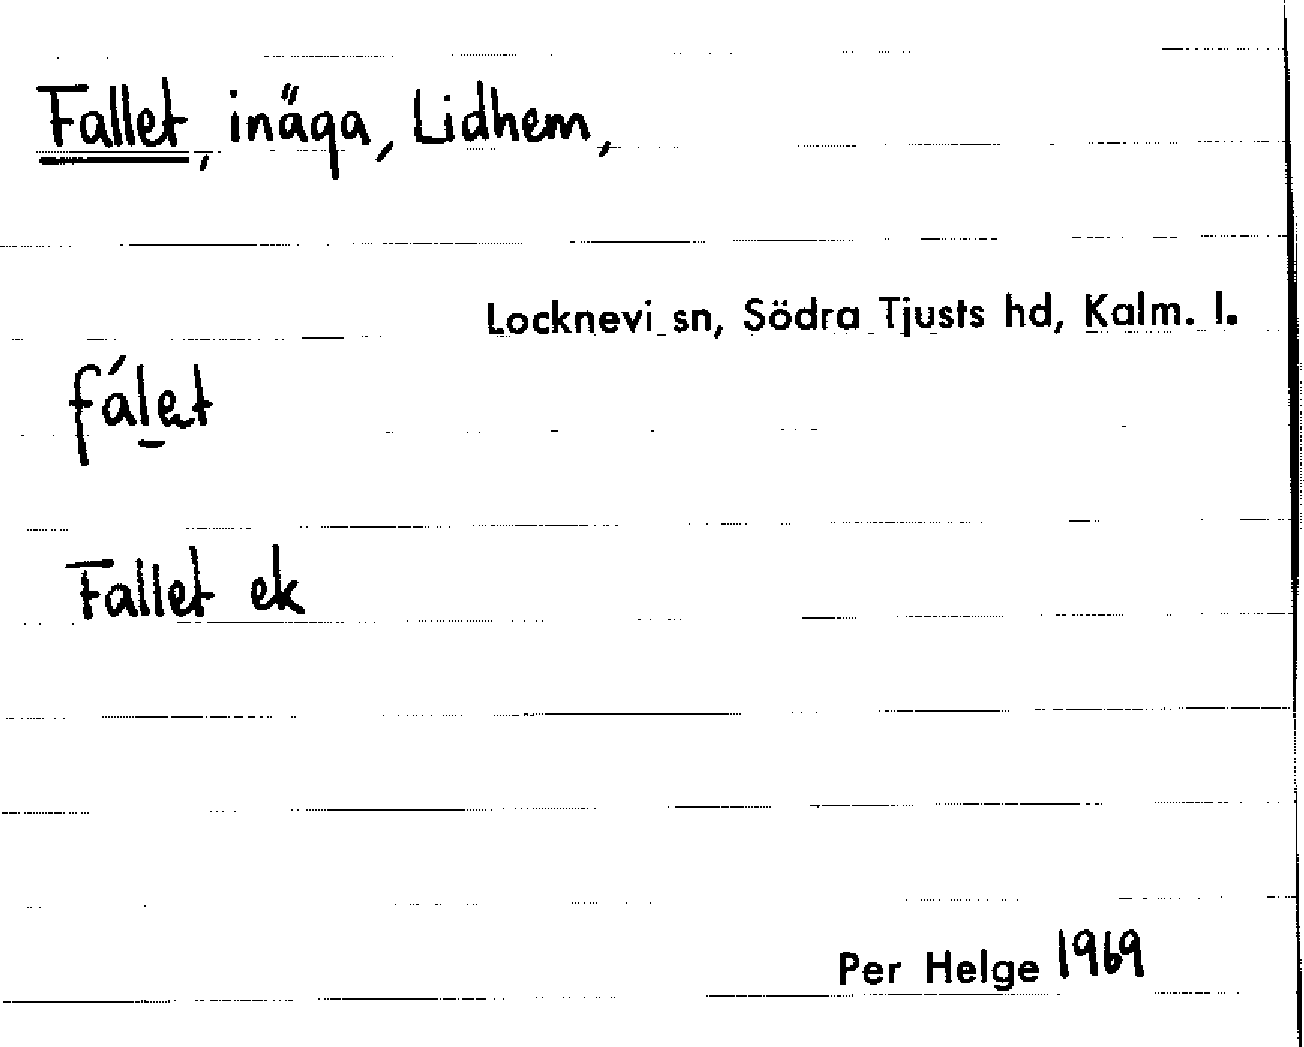 Fallet, inäga, Lidhem,
Locknevi sn, Södra Tjusts hd, Kalm. l.
fál̲et
Fallet ek
Per Helge 1969